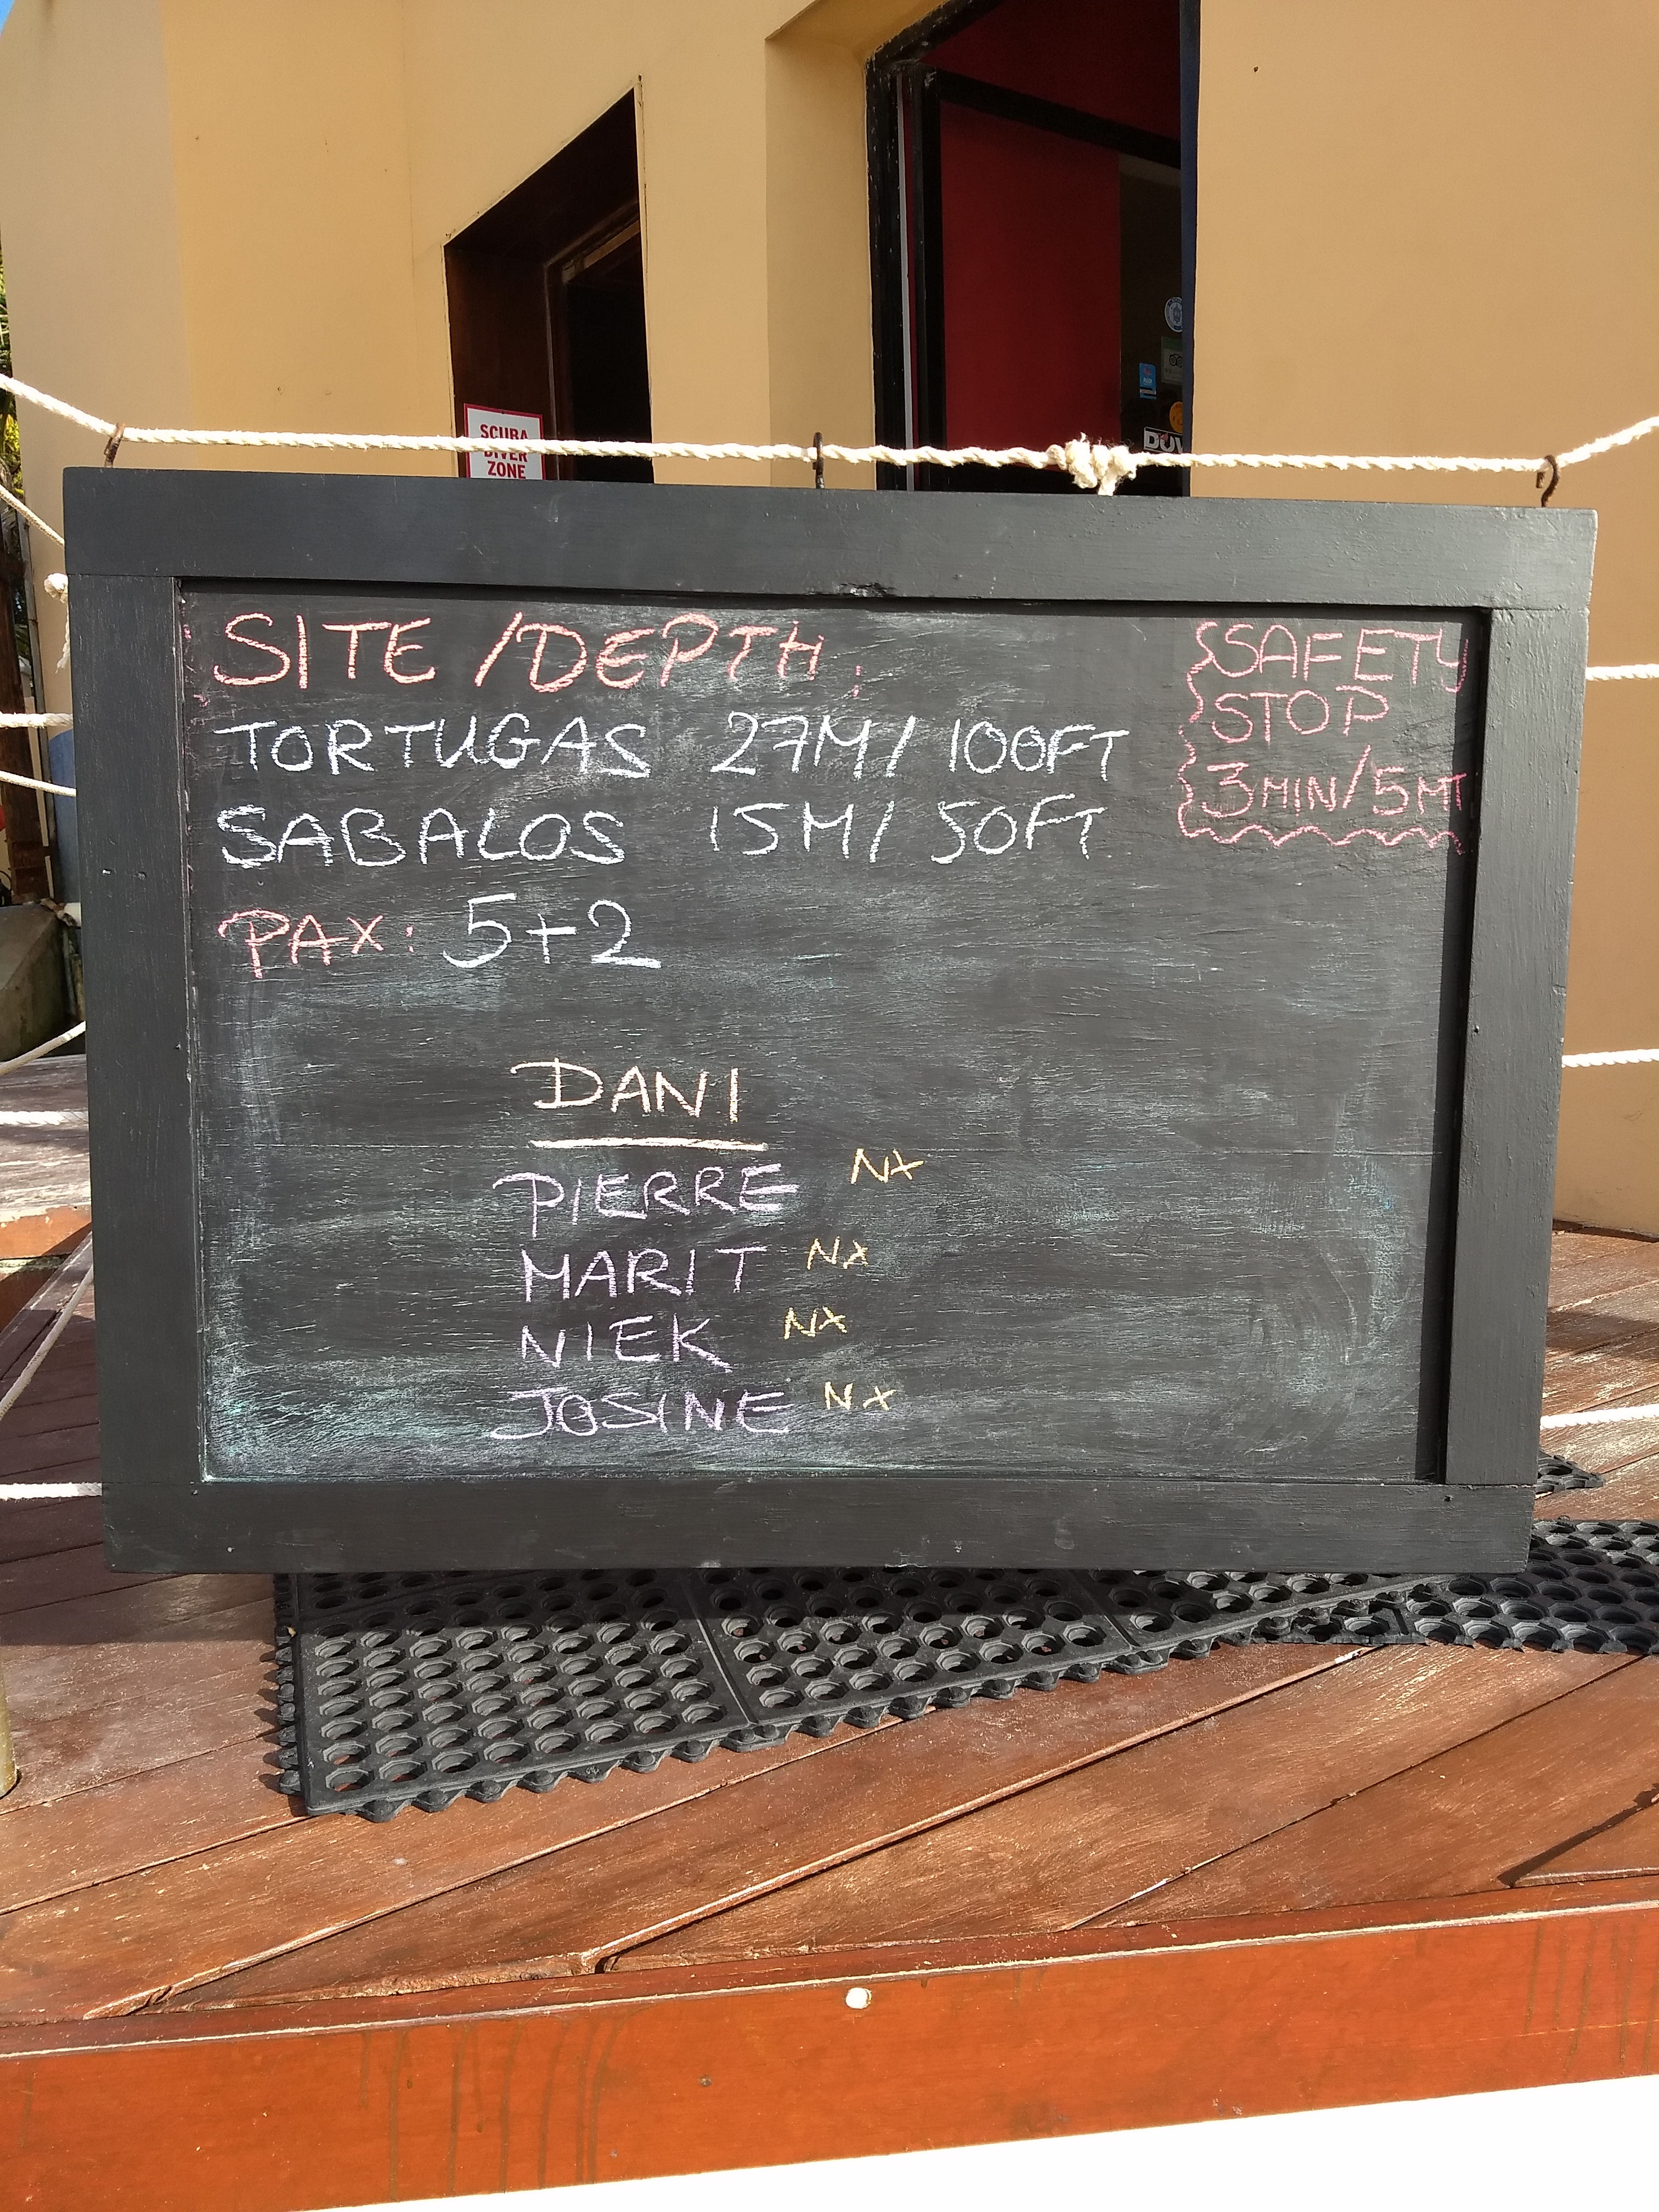 SCUBA
DIVER
ZONE
SITE / DEPTH:
TORTUGAS 27M / 100FT
SABALOS 15M / 50FT
PAX: 5+2
SAFETY
STOP
3MIN/5MT
DANI
PIERRE NX
MARIT NX
NIEK NX
JOSINE NX